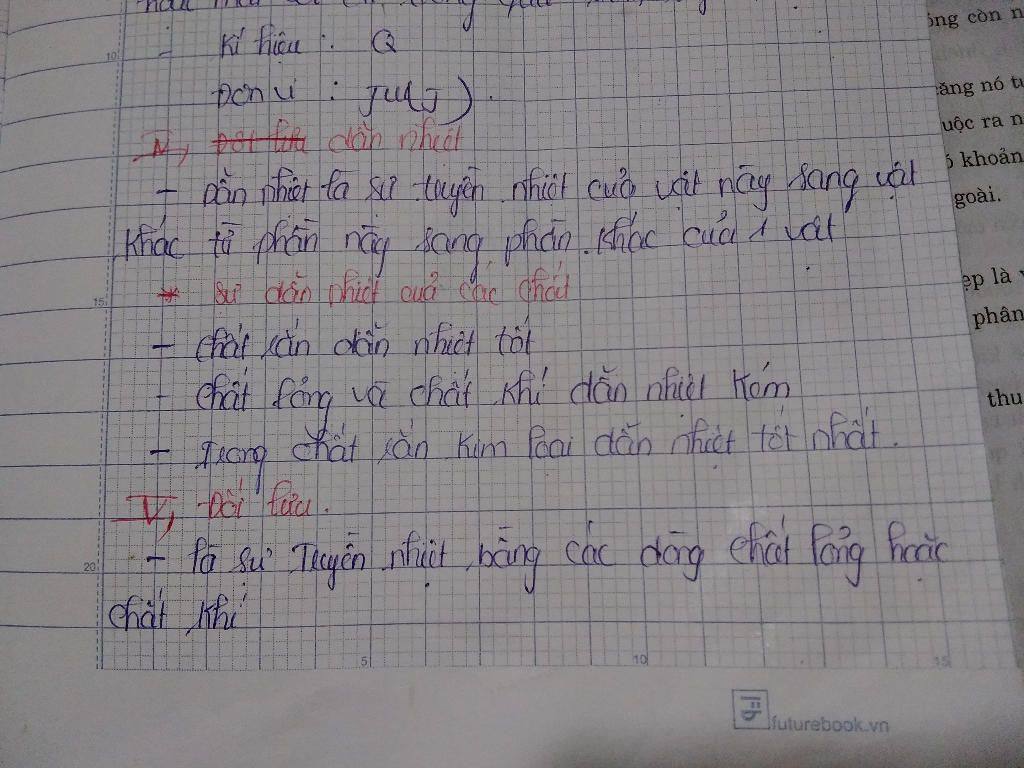 - Kí hiệu : Q
Đơn vị : Ju(J).
IV, Đối lưu dẫn nhiệt
- Dẫn nhiệt là sự truyền nhiệt của vật này sang vật
khác từ phần này sang phần khác của 1 vật
* Sự dẫn nhiệt của các chất
- chất rắn dẫn nhiệt tốt
- chất lỏng và chất khí dẫn nhiệt kém
- Trong chất rắn kim loại dẫn nhiệt tốt nhất.
V, Đối lưu.
- là sự Truyền nhiệt bằng các dòng chất lỏng hoặc
chất khí
10
15
20
5
10
15
futurebook.vn
ông còn n
ăng nó tu
uộc ra n
khoản
goài.
ẹp là v
phân
thu